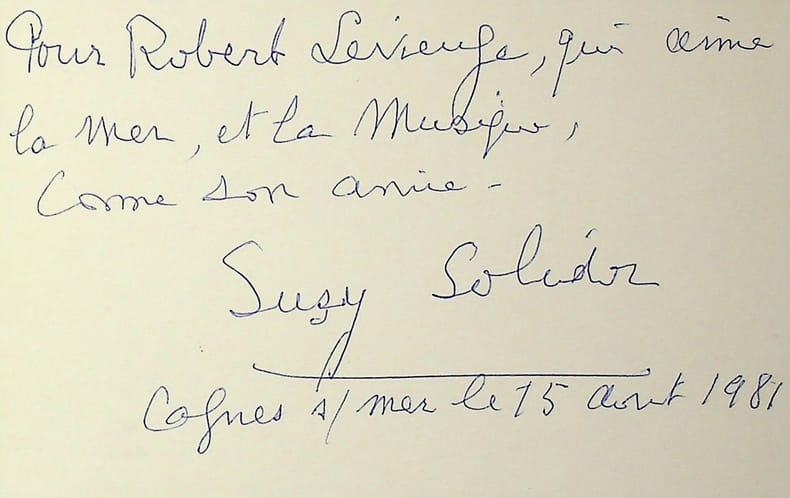 Pour Robert Levieuge, qui aime
la mer, et la Musique,
Comme son amie -
Suzy Solidor
Cagnes s/ mer le 15 aout 1981